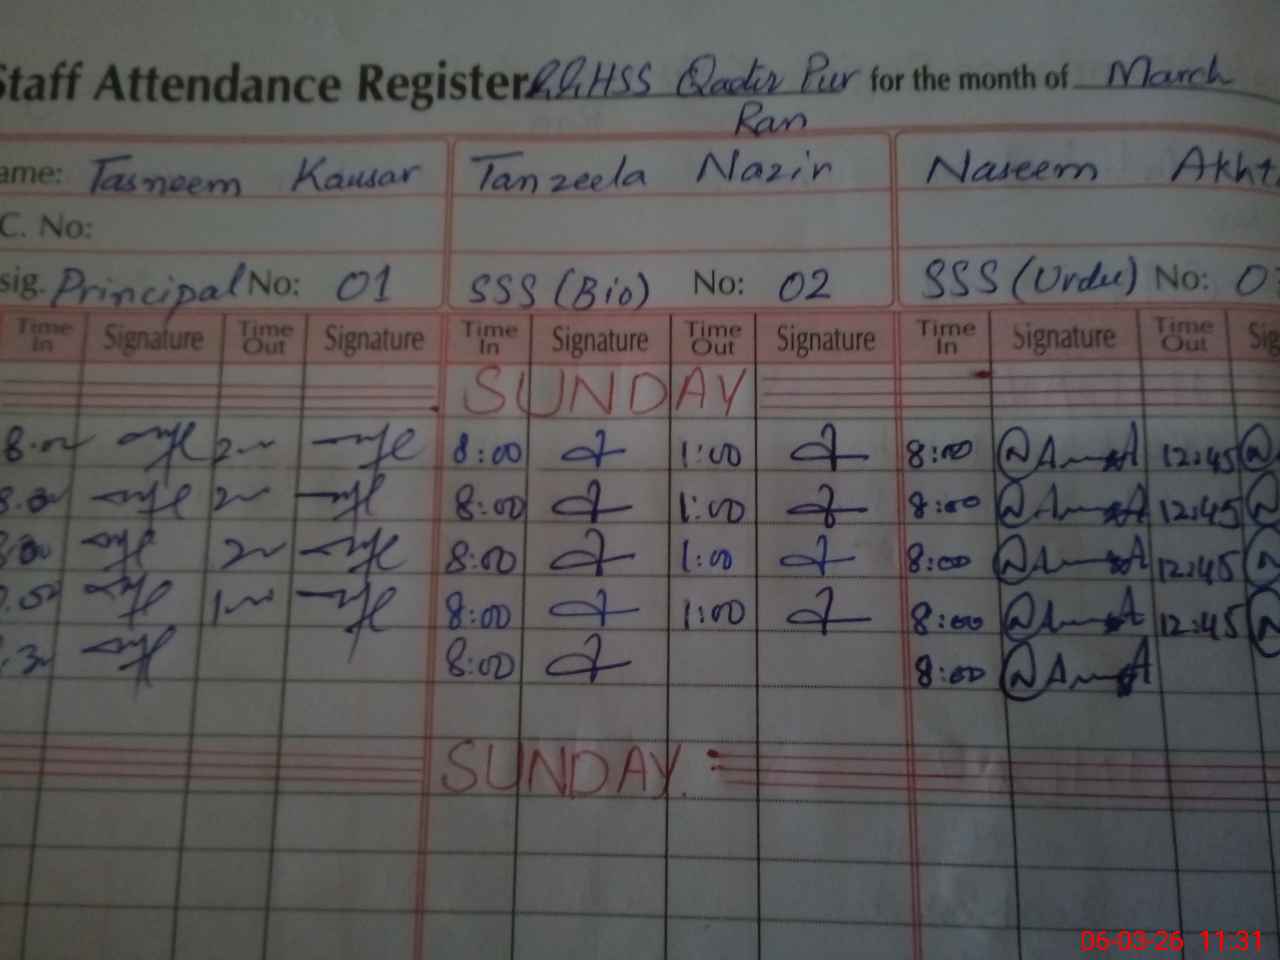 Staff Attendance Register G.G.HSS Qadir Pur for the month of March
Ran
ame: Tasneem Kausar Tanzeela Nazir Naseem Akht
C. No:
sig. Principal No: 01 SSS (Bio) No: 02 SSS (Urdu) No: 0
Time In Signature Time Out Signature Time In Signature Time Out Signature Time In Signature Time Out Sig
SUNDAY
8:00 1:00 8:00 12:45
8:00 1:00 8:00 12:45
8:00 1:00 8:00 12:45
8:00 1:00 8:00 12:45
8:00 8:00
SUNDAY
06-03-26 11:31